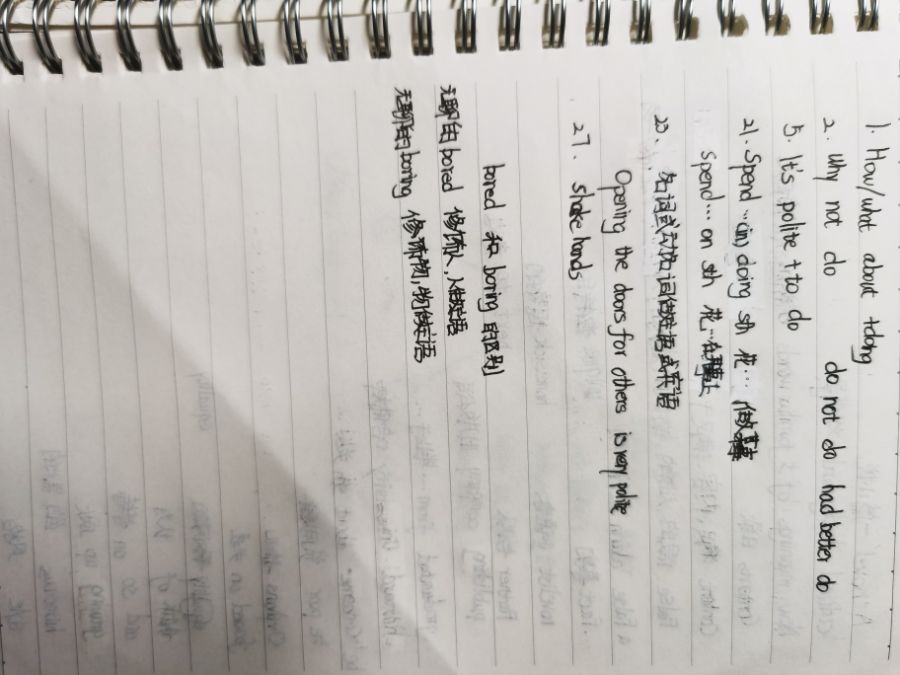 1. How/what about +doing
2. why not do do not do had better do
5. It's polite t to do
21. Spend …(in) doing sth 花… 做某事
spend … on sth 花…在某事上
23. 名词或动名词做主语或宾语
Opening the doors for others is very polite
27. shake hands
bored 和 boring 的区别
无聊的 bored 修饰人,人做主语
无聊的 boring 修饰物,物做主语